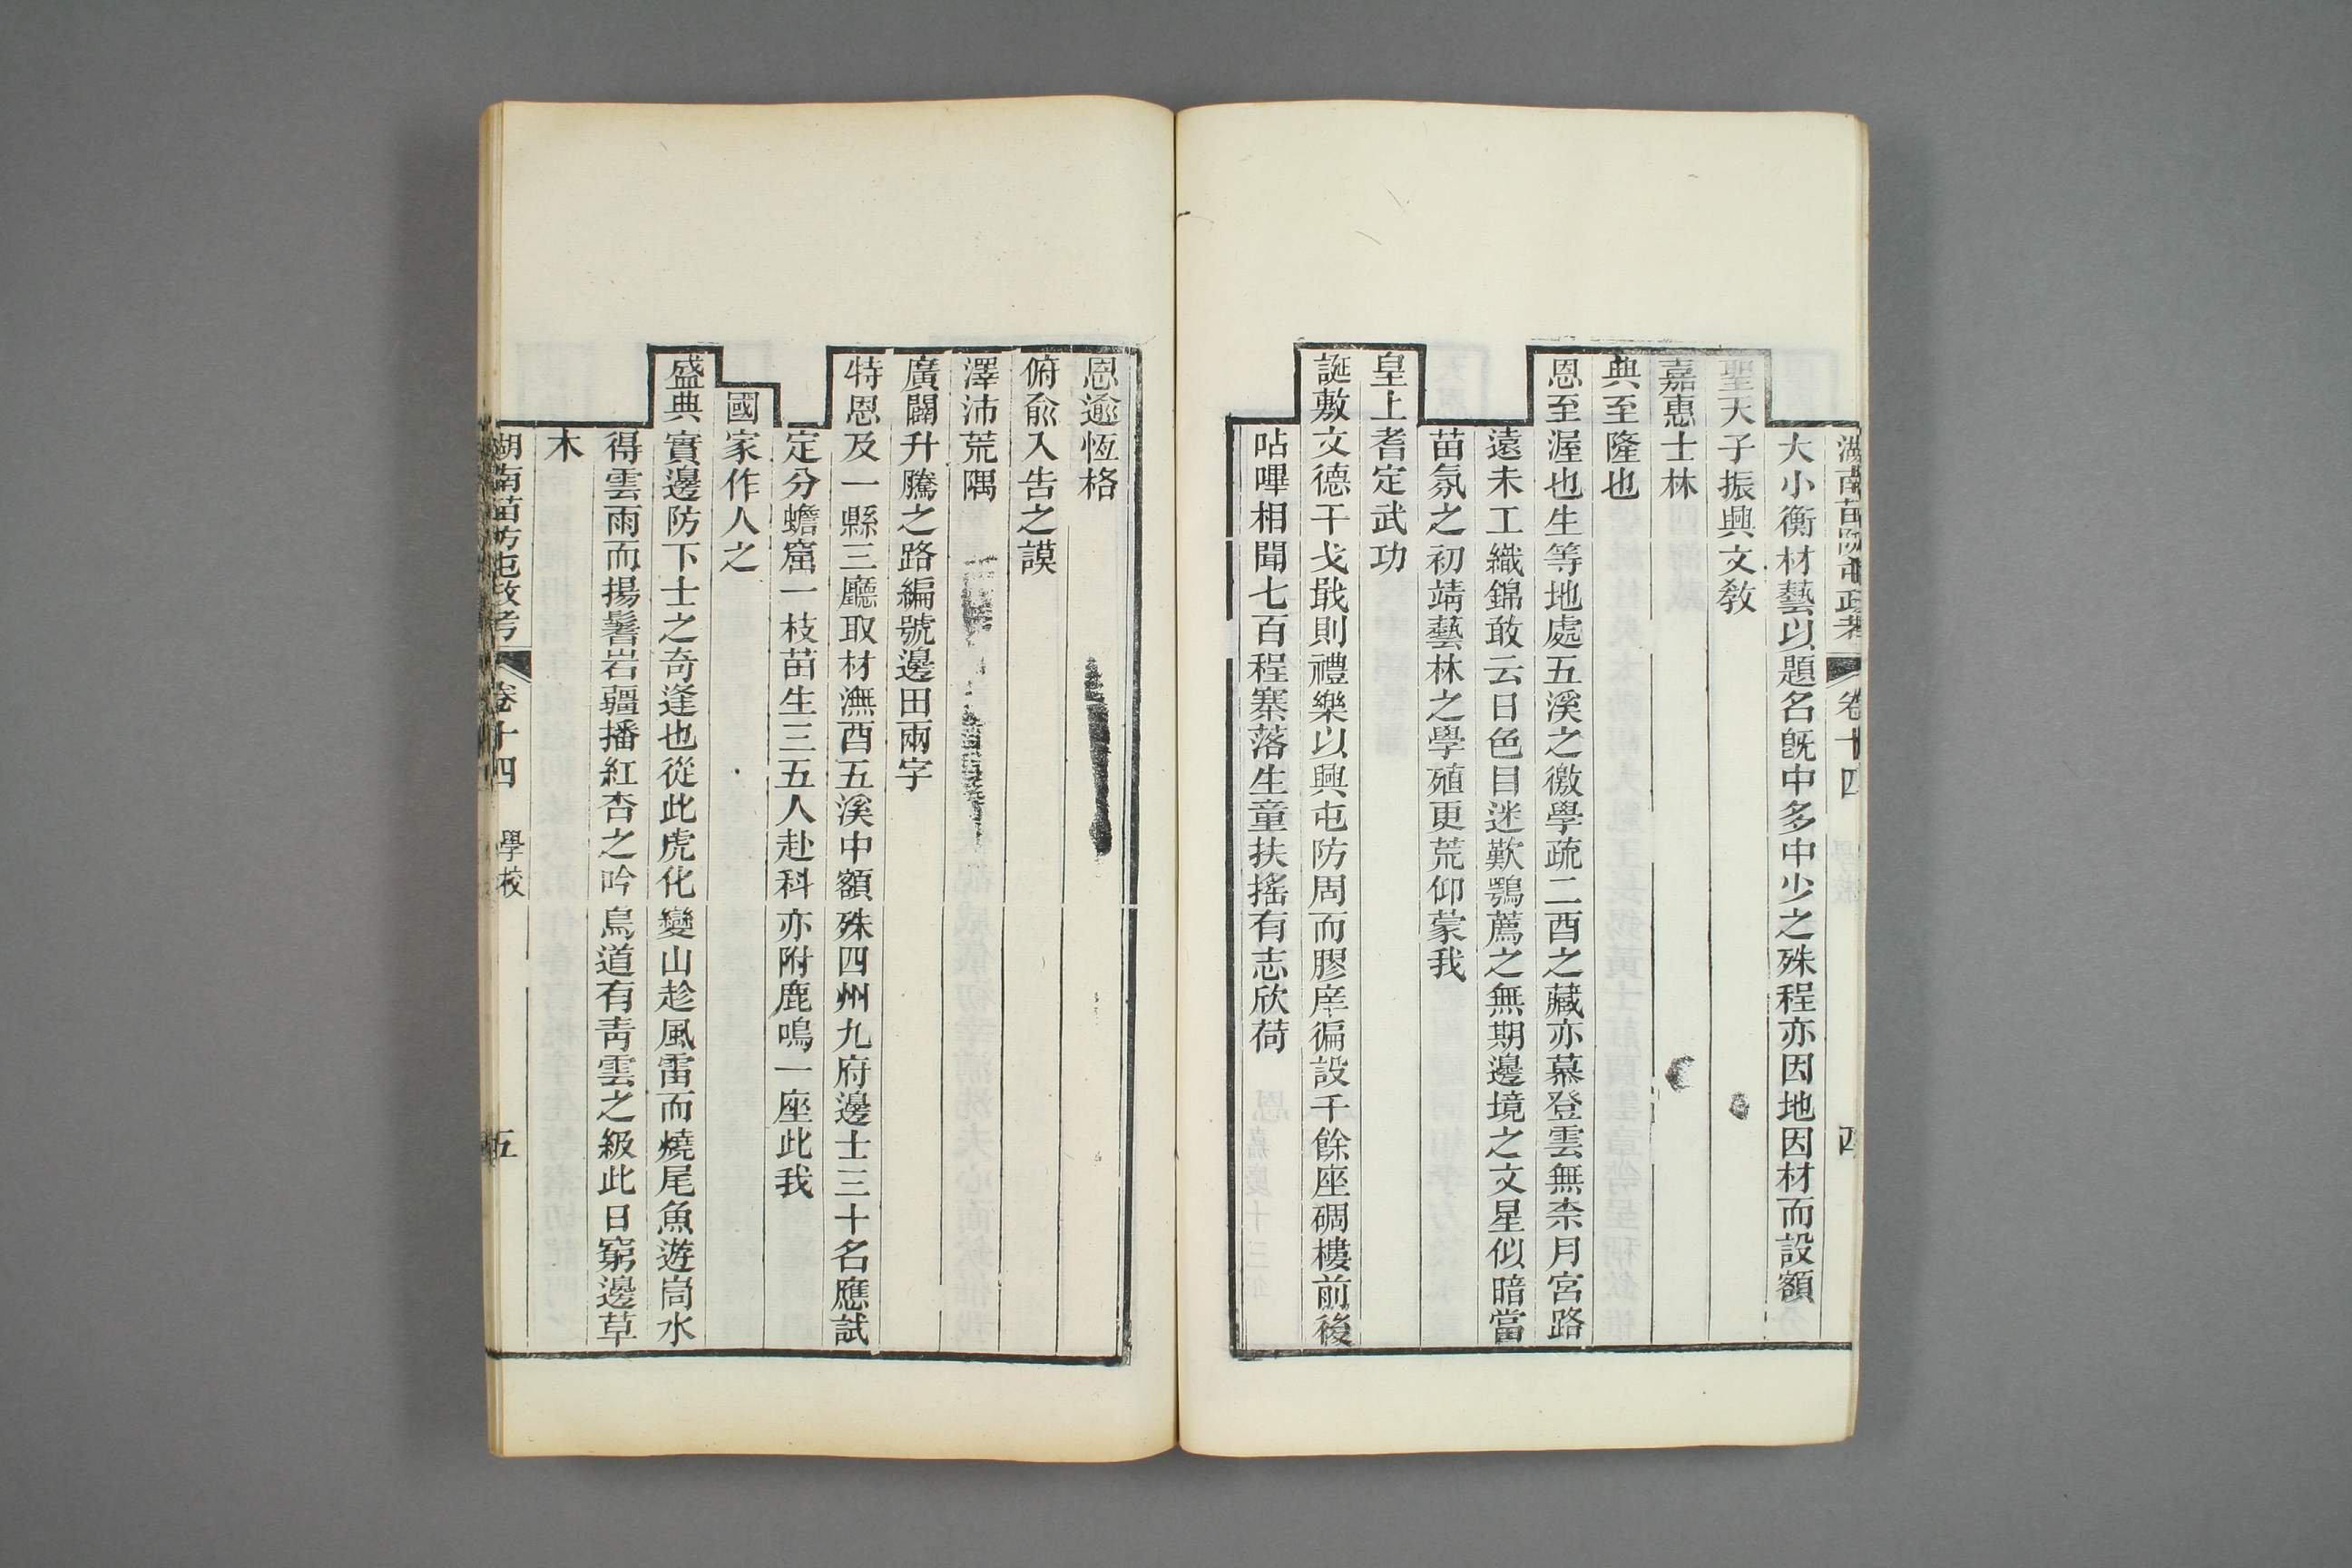 湖南苗防屯政考 卷十四 四
大小衡材藝以題名旣中多中少之殊程亦因地因材而設額
聖天子振興文敎
嘉惠士林
典至隆也
恩至渥也生等地處五溪之徼學疏二酉之藏亦慕登雲無柰月宮路
遠未工織錦敢云日色目迷歎鶚薦之無期邊境之文星似暗當
苗氛之初靖藝林之學殖更荒仰蒙我
皇上耆定武功
誕敷文德干戈戢則禮樂以興屯防周而膠庠徧設千餘座碉樓前後
呫嗶相聞七百程寨落生童扶搖有志欣荷
恩逾恆格
俯俞入告之謨
澤沛荒隅
廣闢升騰之路編號邊田兩字
特恩及一縣三廳取材潕酉五溪中額殊四州九府邊士三十名應試
定分蟾窟一枝苗生三五人赴科亦附鹿鳴一座此我
國家作人之
盛典實邊防下士之奇逢也從此虎化變山趁風雷而燒尾魚遊峝水
得雲雨而揚鬐岩疆播紅杏之吟鳥道有靑雲之級此日窮邊草
木
湖南苗防屯政考 卷十四 學校 五